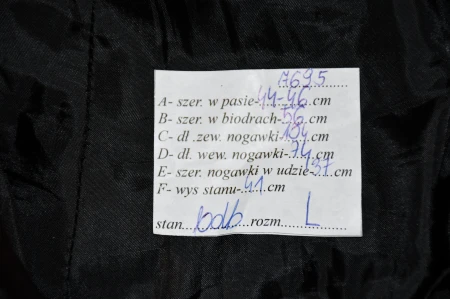 7695
A- szer. w pasie-44-46.cm
B- szer. w biodrach-56.cm
C- dł .zew. nogawki-104.cm
D- dł. wew. nogawki-74.cm
E- szer. nogawki w udzie-37.cm
F- wys stanu-41.cm
stan....bdb....rozm....L....